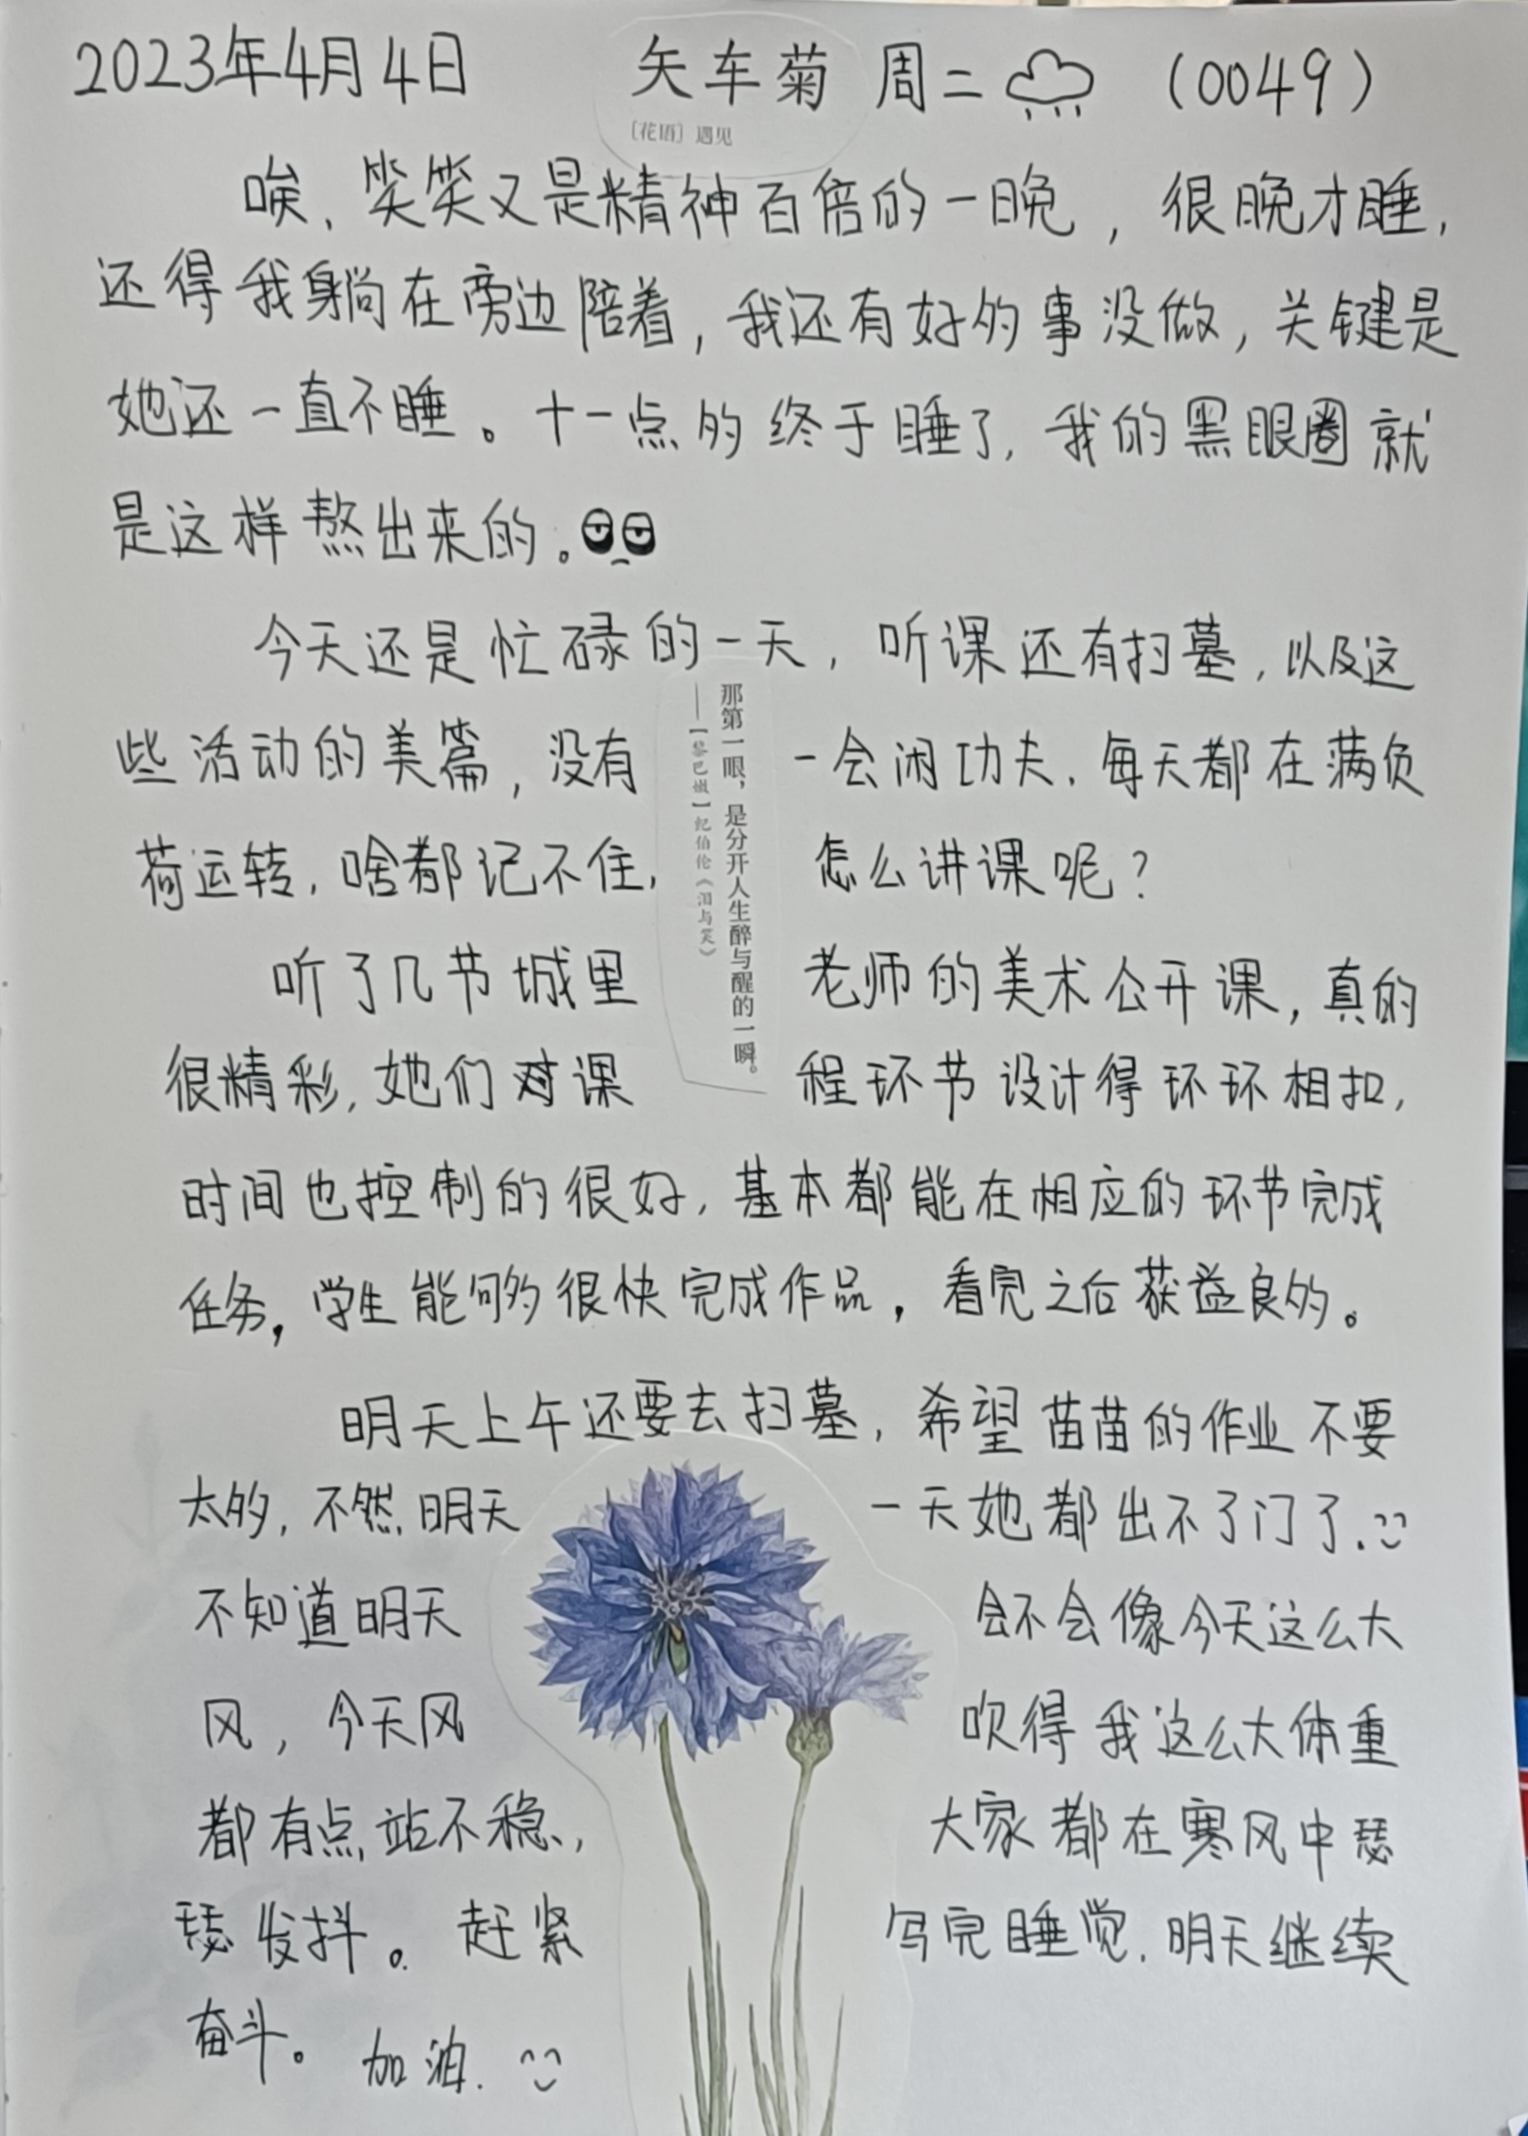 2023年4月4日 矢车菊 周二 （0049）
［花语］遇见
唉，笑笑又是精神百倍的一晚，很晚才睡，
还得我躺在旁边陪着，我还有好多事没做，关键是
她还一直不睡。十一点多终于睡了，我的黑眼圈就
是这样熬出来的。
今天还是忙碌的一天，听课还有扫墓，以及这
些活动的美篇，没有一会闲功夫，每天都在满负
荷运转，啥都记不住，怎么讲课呢？
那第一眼，是分开人生醉与醒的一瞬。
——［黎巴嫩］纪伯伦《泪与笑》
听了几节城里老师的美术公开课，真的
很精彩，她们对课程环节设计得环环相扣，
时间也控制的很好，基本都能在相应的环节完成
任务，学生能够很快完成作品，看完之后获益良多。
明天上午还要去扫墓，希望苗苗的作业不要
太多，不然明天一天她都出不了门了.
不知道明天会不会像今天这么大
风，今天风吹得我这么大体重
都有点站不稳，大家都在寒风中瑟
瑟发抖。赶紧写完睡觉.明天继续
奋斗。加油.